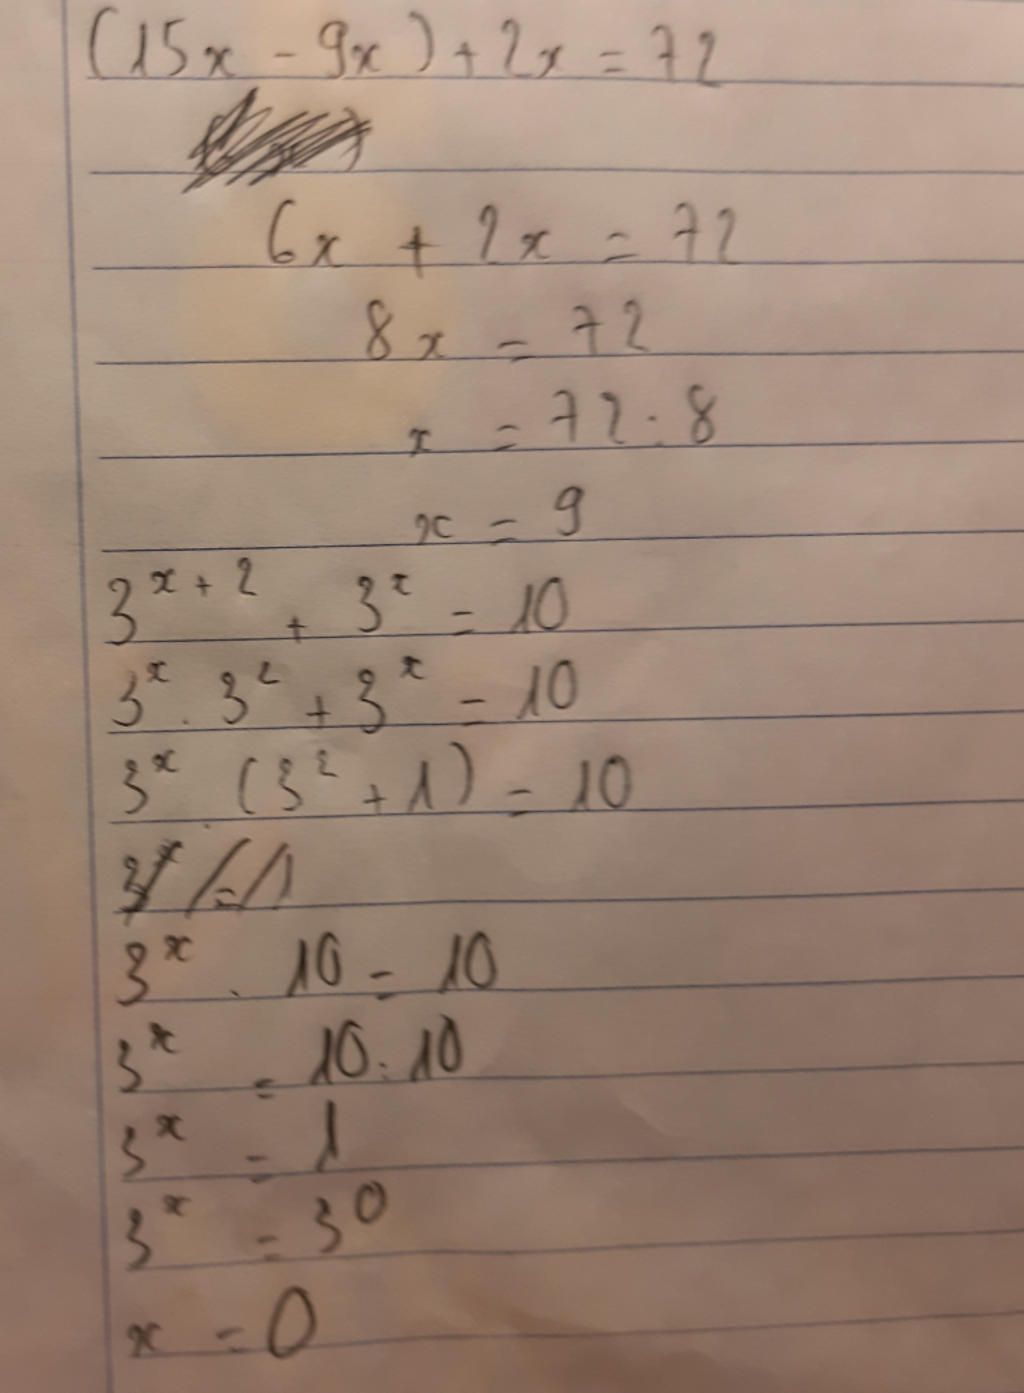 (15x - 9x) + 2x = 72
6x + 2x = 72
8x = 72
x = 72 : 8
x = 9
3^{x+2} + 3^x = 10
3^x . 3^2 + 3^x = 10
3^x . (3^2 + 1) = 10
3^x = 1
3^x . 10 = 10
3^x = 10 : 10
3^x = 1
3^x = 3^0
x = 0